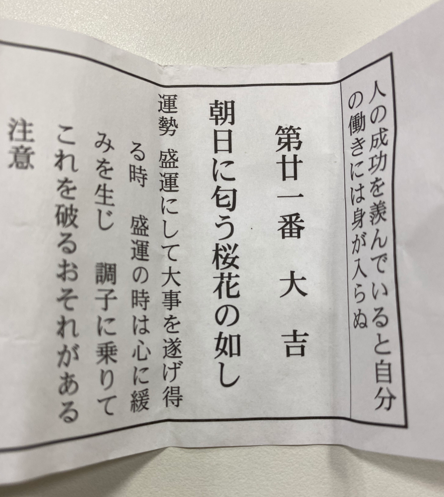 人の成功を羨んでいると自分
の働きには身が入らぬ
第廿一番 大吉
朝日に匂う桜花の如し
運勢 盛運にして大事を遂げ得
る時 盛運の時は心に緩
みを生じ 調子に乗りて
これを破るおそれがある
注意